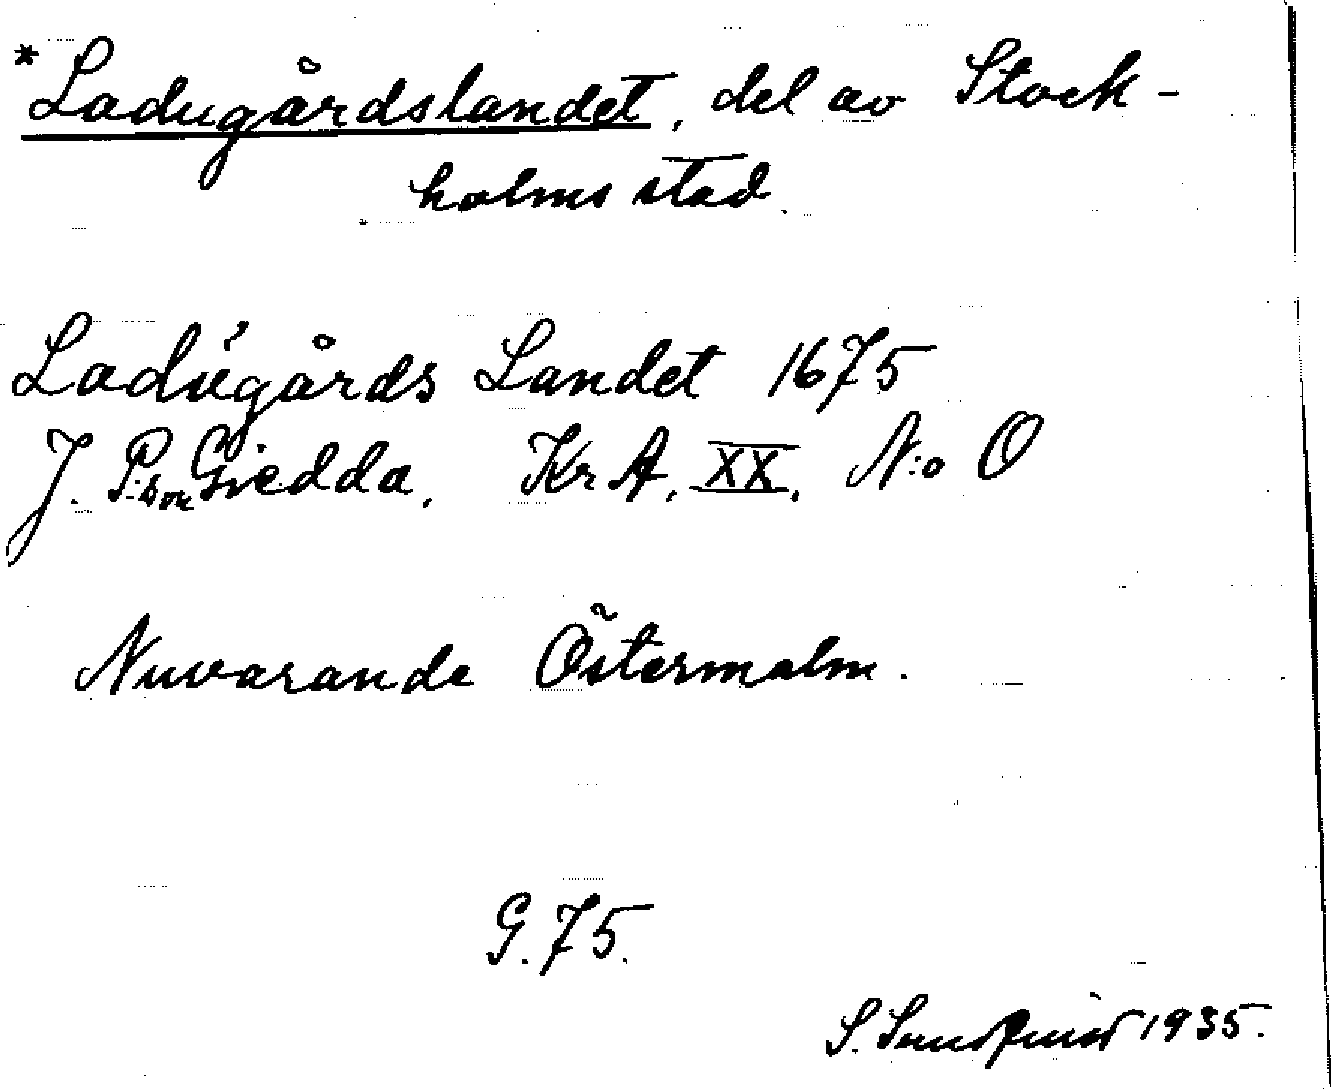 *Ladugårdslandet, del av Stock-
holms stad.
Ladugårds Landet 1675
J. P:son Giedda, KrA, XX, N:o O
Nuvarande Östermalm.
G. 75.
S. Sundquist 1935.